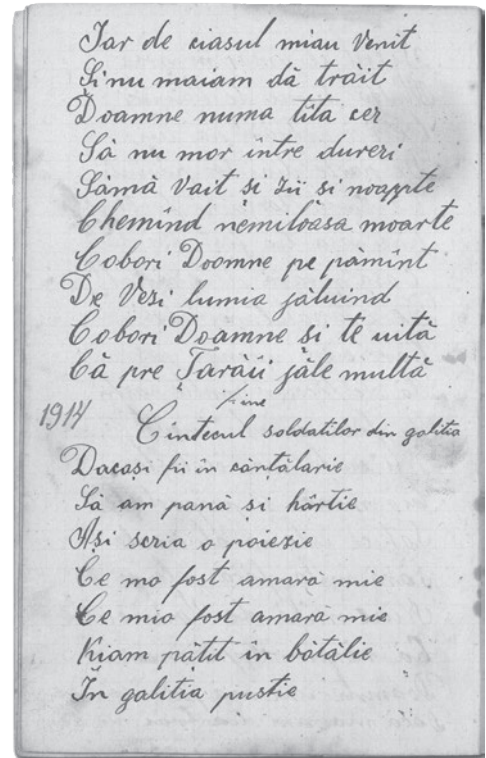 Iar de ciasul miau venit
Și nu maiam dă trăit
Doamne numa tîta cer
Să nu mor între dureri
Sămă vait si zii si noapte
Chemînd nemiloasa moarte
Cobori Doomne pe pămînt
De Vezi lumia jăluind
Cobori Doamne și te uită
Că pre Țarăii jăle multă
fine
1914 Cîntecul soldatilor din galitia
Dacași fii în cănțălarie
Să am pană și hârtie
Ași scria o poiezie
Ce mo fost amară mie
Ce mio fost amară mie
Kiam pățit în bătălie
În galitia pustie